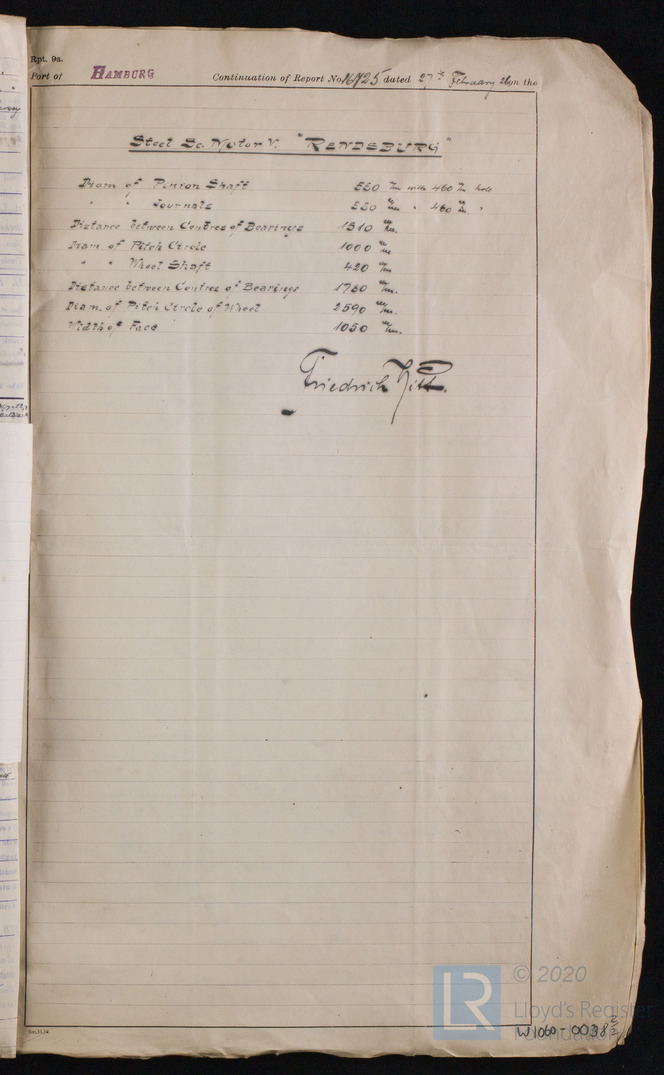 Rpt. 9a.
Port of HAMBURG Continuation of Report No. 16725 dated 27th February 26 on the
Steel Sc. Motor V. "RENDSBURG"
Diam of Pinion Shaft 550 m/m with 460 m/m hole
" " Journals 550 m/m " 460 m/m "
Distance between Centres of Bearings 1310 m/m.
Diam. of Pitch Circle 1000 m/m
" " Wheel Shaft 420 m/m
Distance between Centres of Bearings 1760 m/m.
Diam. of Pitch Circle of Wheel 2590 m/m.
Width of Face 1050 m/m.
Friedrich
© 2020
LR Lloyd's Register
Foundation
W1060-0038 2/2